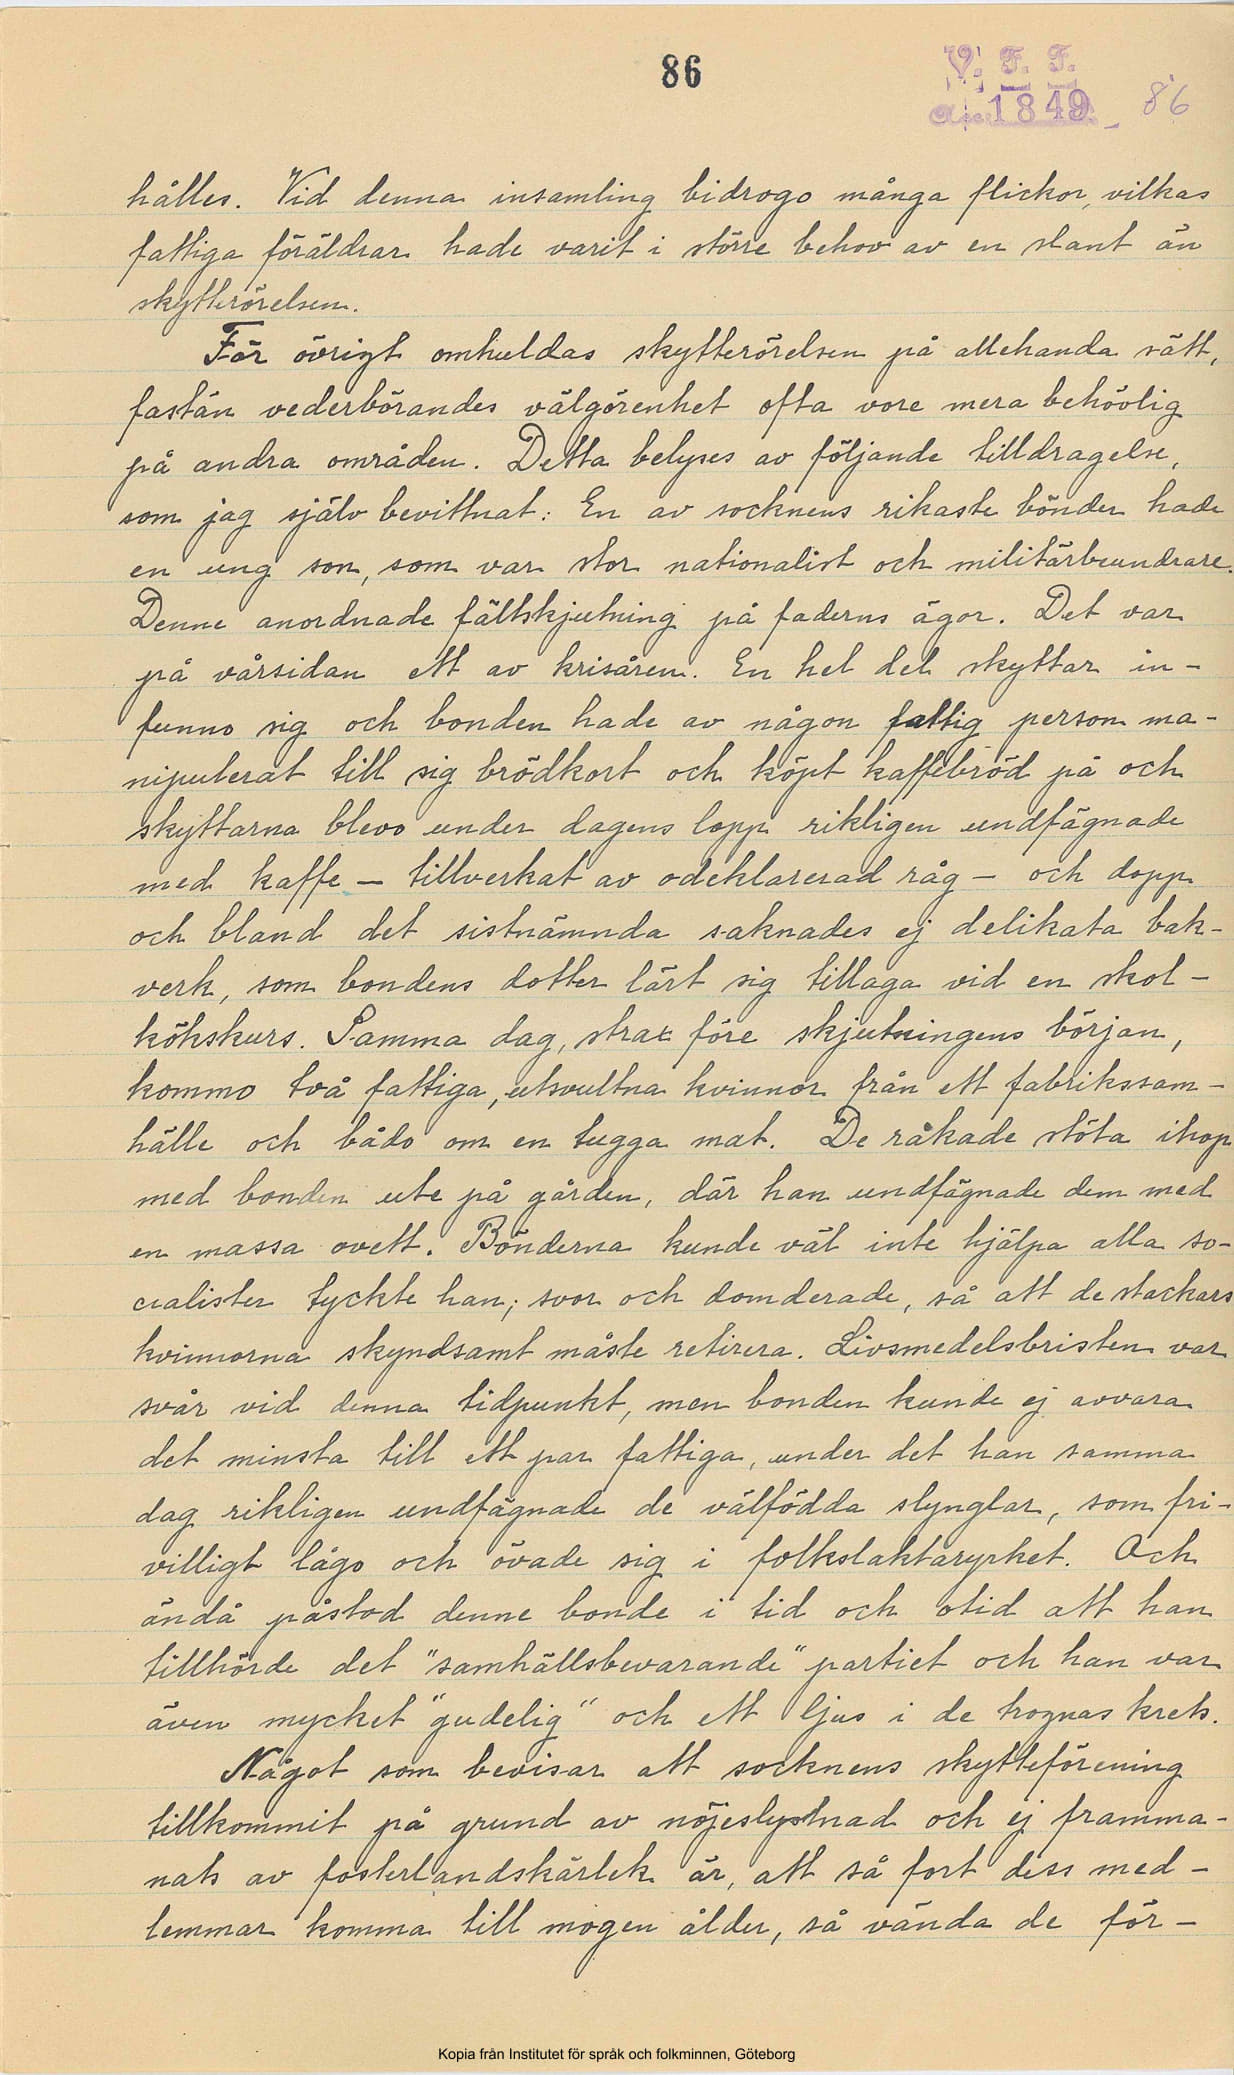 86
V. F. F.
Acc. 1849. 86
hålles. Vid denna insamling bidrogo många flickor, vilkas
fattiga föräldrar hade varit i större behov av en slant än
skytterörelsen.
För övrigt omhuldas skytterörelsen på allehanda sätt,
fastän vederbörandes välgörenhet ofta vore mera behövlig
på andra områden. Detta belyses av följande tilldragelse,
som jag själv bevittnat: En av socknens rikaste bönder hade
en ung son, som var stor nationalist och militärbeundrare.
Denne anordnade fältskjutning på faderns ägor. Det var
på vårsidan ett av krisåren. En hel del skyttar in-
funno sig och bonden hade av någon fattig person ma-
nipulerat till sig brödkort och köpt kaffebröd på och
skyttarna blevo under dagens lopp rikligen undfägnade
med kaffe – tillverkat av odeklarerad råg – och dopp
och bland det sistnämnda saknades ej delikata bak-
verk, som bondens dotter lärt sig tillaga vid en skol-
kökskurs. Samma dag, strax före skjutningens början,
kommo två fattiga, utsvultna kvinnor från ett fabrikssam-
hälle och bådo om en tugga mat. De råkade stöta ihop
med bonden ute på gården, där han undfägnade dem med
en massa ovett. Bönderna kunde väl inte hjälpa alla so-
cialister tyckte han; svor och domderade, så att de stackars
kvinnorna skyndsamt måste retirera. Livsmedelsbristen var
svår vid denna tidpunkt, men bonden kunde ej avvara
det minsta till ett par fattiga, under det han samma
dag rikligen undfägnade de välfödda slynglar, som fri-
villigt lågo och övade sig i folkslaktaryrket. Och
ändå påstod denne bonde i tid och otid att han
tillhörde det "samhällsbevarande" partiet och han var
även mycket "gudelig" och ett ljus i de trognas krets.
Något som bevisar att socknens skytteförening
tillkommit på grund av nöjeslystnad och ej framma-
nats av fosterlandskärlek är, att så fort dess med-
lemmar komma till mogen ålder, så vända de för-
Kopia från Institutet för språk och folkminnen, Göteborg